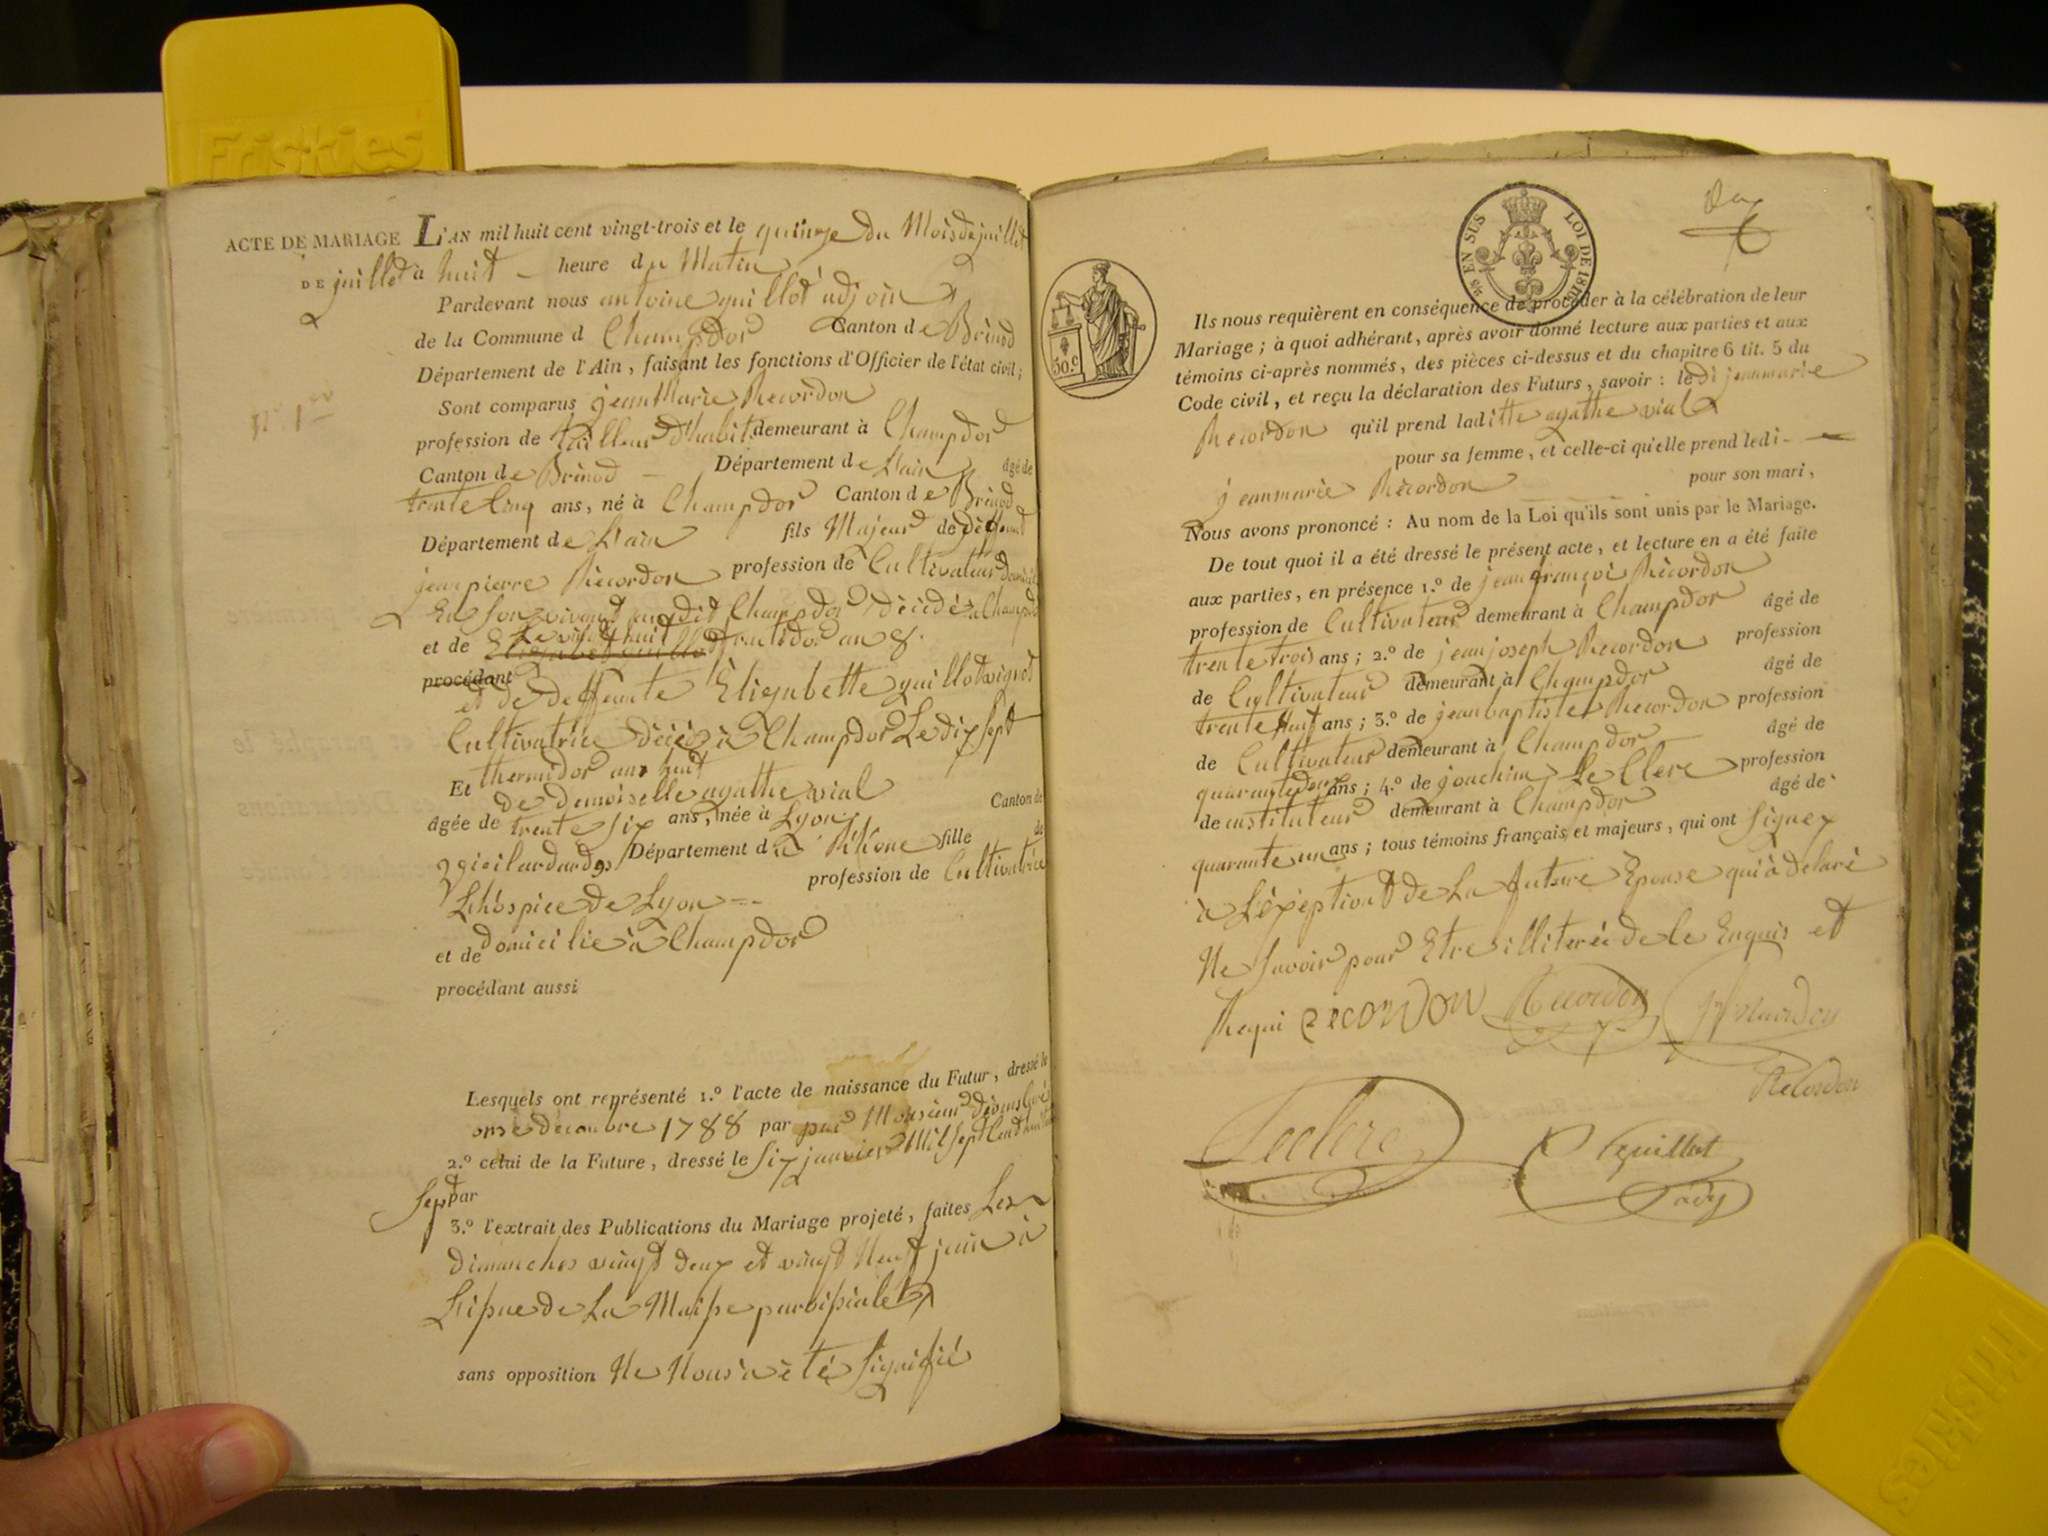 Friskies
ACTE DE MARIAGE L'AN mil huit cent vingt-trois et le quinze du Mois de juillet
DE juillet à huit heure du Matin
Pardevant nous antoine guillot adjoin
de la Commune d Champdor Canton de Brénod
Département de l'Ain, faisant les fonctions d'Officier de l'état civil;
Sont comparus jean Marie Recordon
profession de tailleur d'habit demeurant à Champdor
Canton de Brénod Département de L'ain âgé de
trente Cinq ans, né à Champdor Canton de Brénod
Département de L'ain fils Majeur de deffeunt
jean pierre Récordon profession de Cultivateur
En Son vivant audit Champdor décédé à Champdor
Le vingt huit
et de fructidor an 8.
procédant
et de deffeunte Elizabette guillot
Cultivatrice décédé à Champdor Le dix sept
thermidor an huit
Et de demoiselle agathe vial
âgée de trente Six ans, née à Lyon Canton de
Département du Rhône fille de
L'hospice de Lyon profession de Cultivatrice
et de domiciliée à Champdor
procédant aussi
Lesquels ont représenté 1.° l'acte de naissance du Futur, dressé le
onze décembre 1788 par Monsieur
2.° celui de la Future, dressé le Six janvier Mil Sept Cent huitante
Sept par
3.° l'extrait des Publications du Mariage projeté, faites Les
dimanches vingt deux et vingt Neuf juin à
L'issue de La Messe paroissiale
sans opposition Ne Nous a été Signifié
EN SUS LOI DE 1816
50.c
Ils nous requièrent en conséquence de procéder à la célébration de leur
Mariage; à quoi adhérant, après avoir donné lecture aux parties et aux
témoins ci-après nommés, des pièces ci-dessus et du chapitre 6 tit. 5 du
Code civil, et reçu la déclaration des Futurs, savoir: ledi jeanmarie
Recordon qu'il prend laditte agathe vial
pour sa femme, et celle-ci qu'elle prend ledi
jeanmarie Récordon pour son mari,
Nous avons prononcé: Au nom de la Loi qu'ils sont unis par le Mariage.
De tout quoi il a été dressé le présent acte, et lecture en a été faite
aux parties, en présence 1.° de jean françoi Récordon
profession de Cultivateur demeurant à Champdor âgé de
trente trois ans; 2.° de jean joseph Recordon profession
de Cultivateur demeurant à Champdor âgé de
trente huit ans; 3.° de jean baptiste Recordon profession
de Cultivateur demeurant à Champdor âgé de
quarante deux ans; 4.° de joachim Le Clerc profession
de instituteur demeurant à Champdor âgé de
quarante un ans; tous témoins français et majeurs, qui ont Signez
à L'exeption de La future Epouse qui à déclaré
Ne Savoir pour Etre illiterée de le Enquis et
Requi recordon Recordon Recordon
Recordon
Leclerc guillot
adj
Friskies